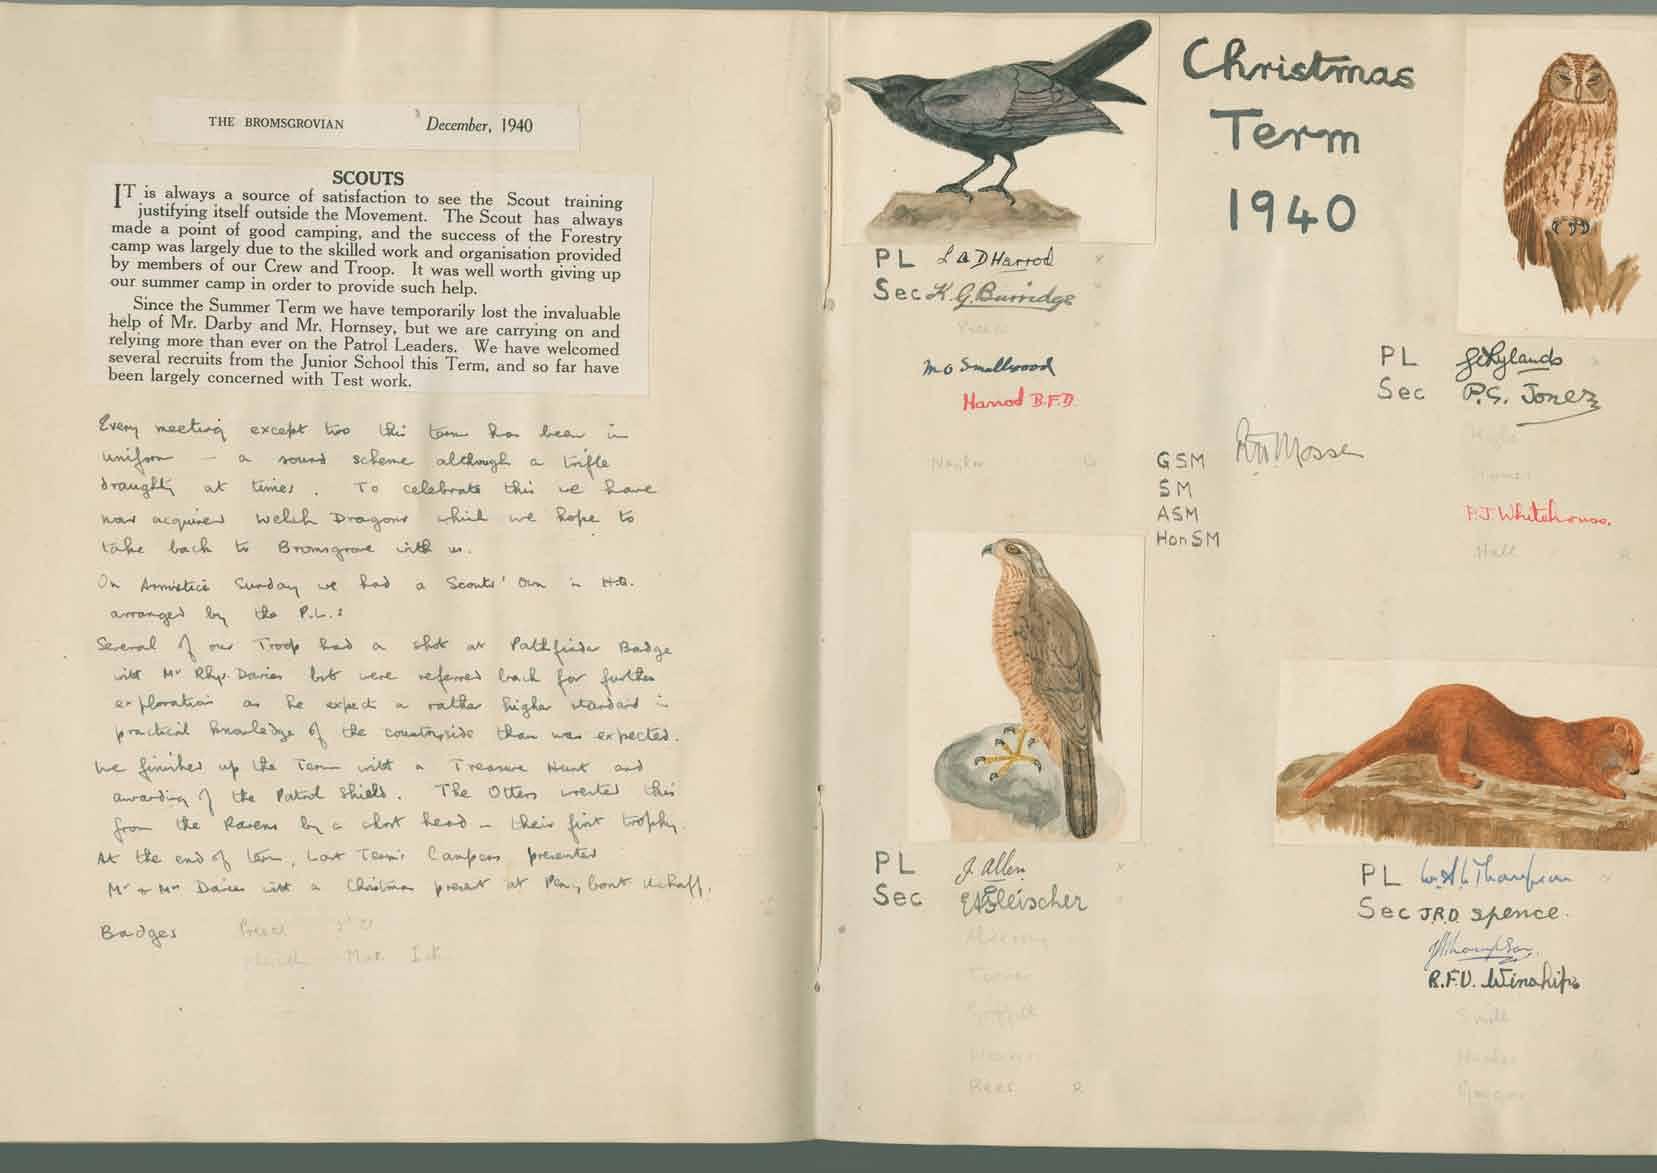 THE BROMSGROVIAN December, 1940
SCOUTS
IT is always a source of satisfaction to see the Scout training
justifying itself outside the Movement. The Scout has always
made a point of good camping, and the success of the Forestry
camp was largely due to the skilled work and organisation provided
by members of our Crew and Troop. It was well worth giving up
our summer camp in order to provide such help.
Since the Summer Term we have temporarily lost the invaluable
help of Mr. Darby and Mr. Hornsey, but we are carrying on and
relying more than ever on the Patrol Leaders. We have welcomed
several recruits from the Junior School this Term, and so far have
been largely concerned with Test work.
Every meeting except two this term has been in
uniform — a sound scheme although a trifle
draughty at times. To celebrate this we have
now acquired Welch Dragons which we hope to
take back to Bromsgrove with us.
On Armistice Sunday we had a Scouts' Own in H.Q.
arranged by the P.L.s
Several of our Troop had a shot at Pathfinder Badge
with Mr Rhys-Davies but were referred back for further
exploration as he expects a rather higher standard in
practical knowledge of the countryside than was expected.
We finished up the Term with a Treasure Hunt and
awarding of the Patrol Shield. The Otters wrested this
from the Ravens by a short head – their first trophy.
At the end of term, Last Term's Campers presented
Mr & Mrs Davies with a Christmas present at
Badges
Christmas
Term
1940
PL L A D Harrod
Sec K. G. Burridge
M O Smallwood
Harrod B.F.D.
PL Rylands
Sec P.G. Jones
P.J. Whitehouse.
Hall R
GSM
SM
ASM
Hon SM
PL J. Allen
Sec Fleischer
Turner
Rees R
PL W.A.L. Thompson
Sec J.R.D. Spence.
Thompson.
R.F.V. Winship